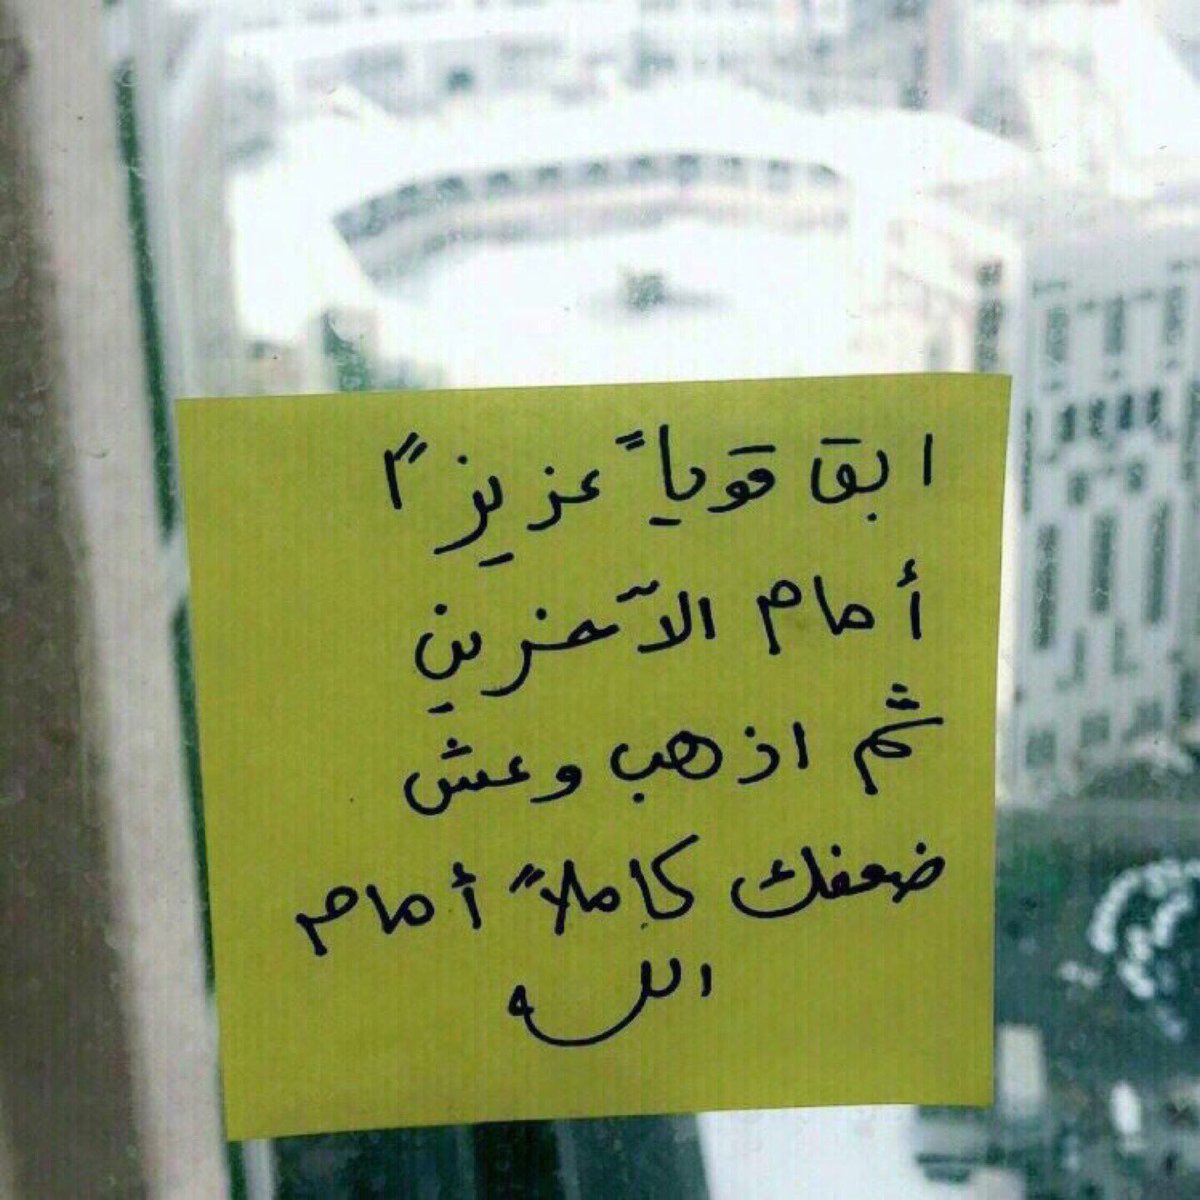 ابق قوياً عزيزاً
أمام الآخرين
ثم اذهب وعش
ضعفك كاملاً أمام
الله